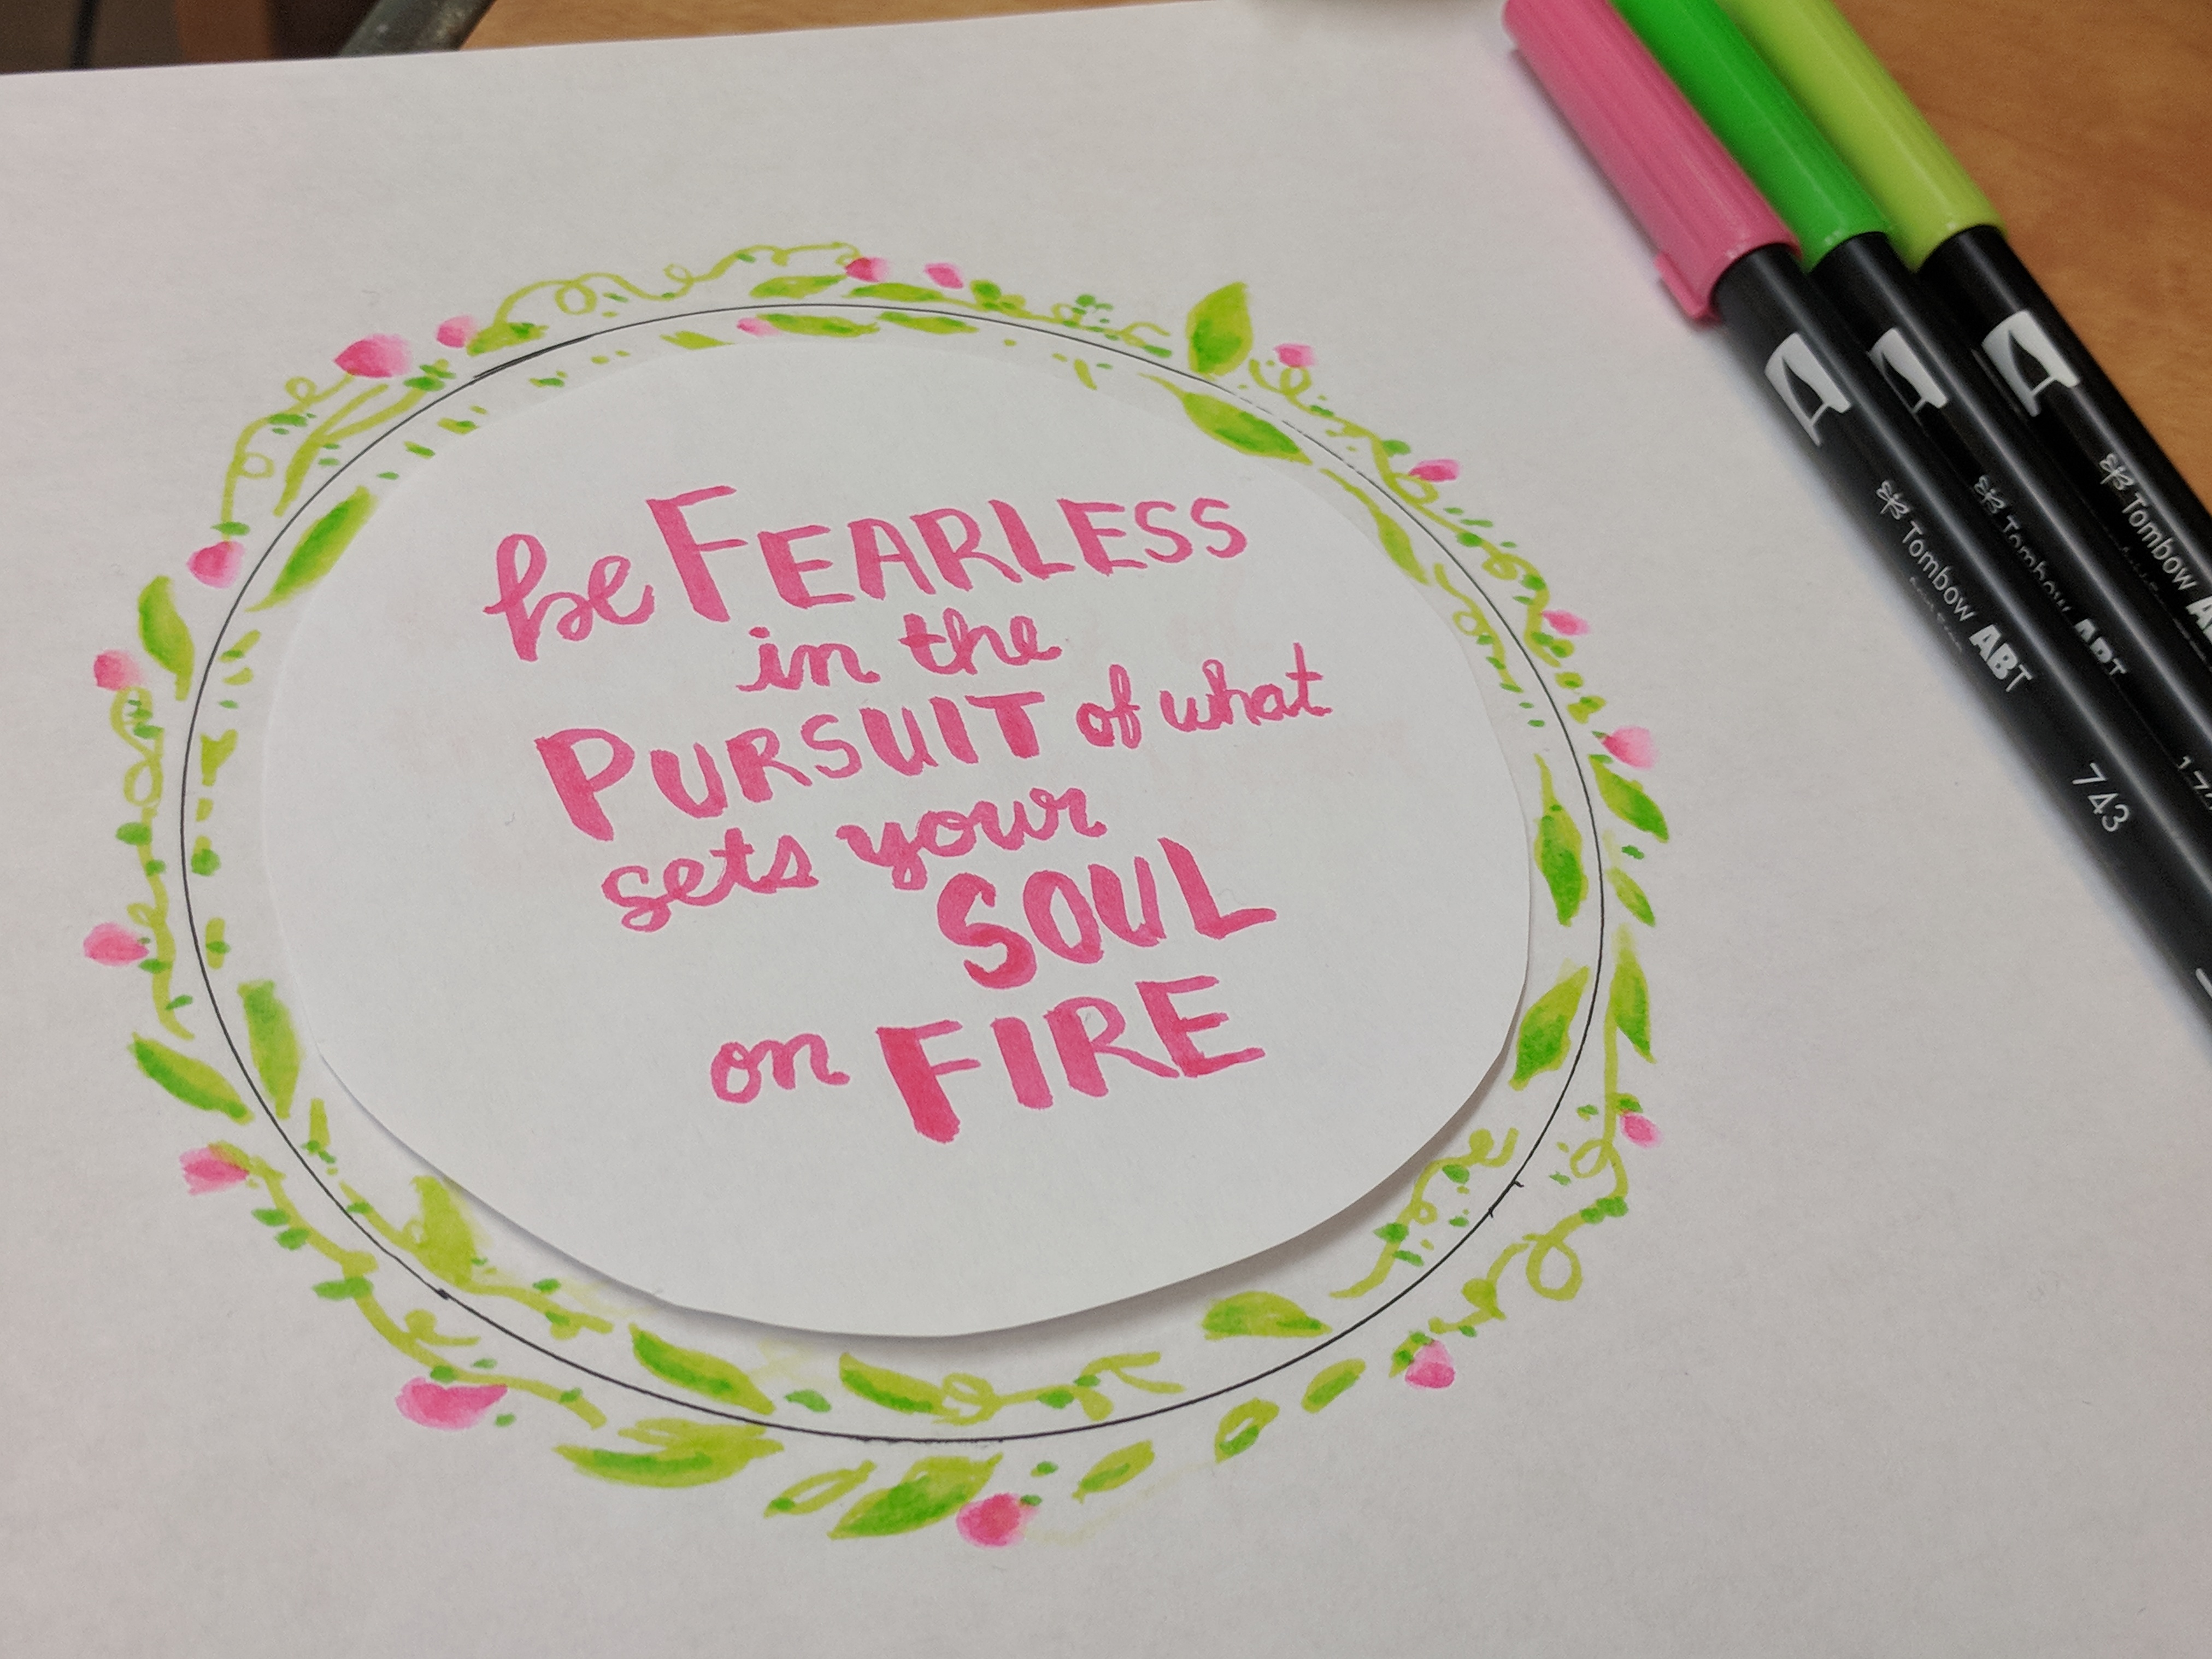 be FEARLESS
in the
PURSUIT of what
sets your
SOUL
on FIRE
Tombow ABT
743
Tombow ABT
Tombow